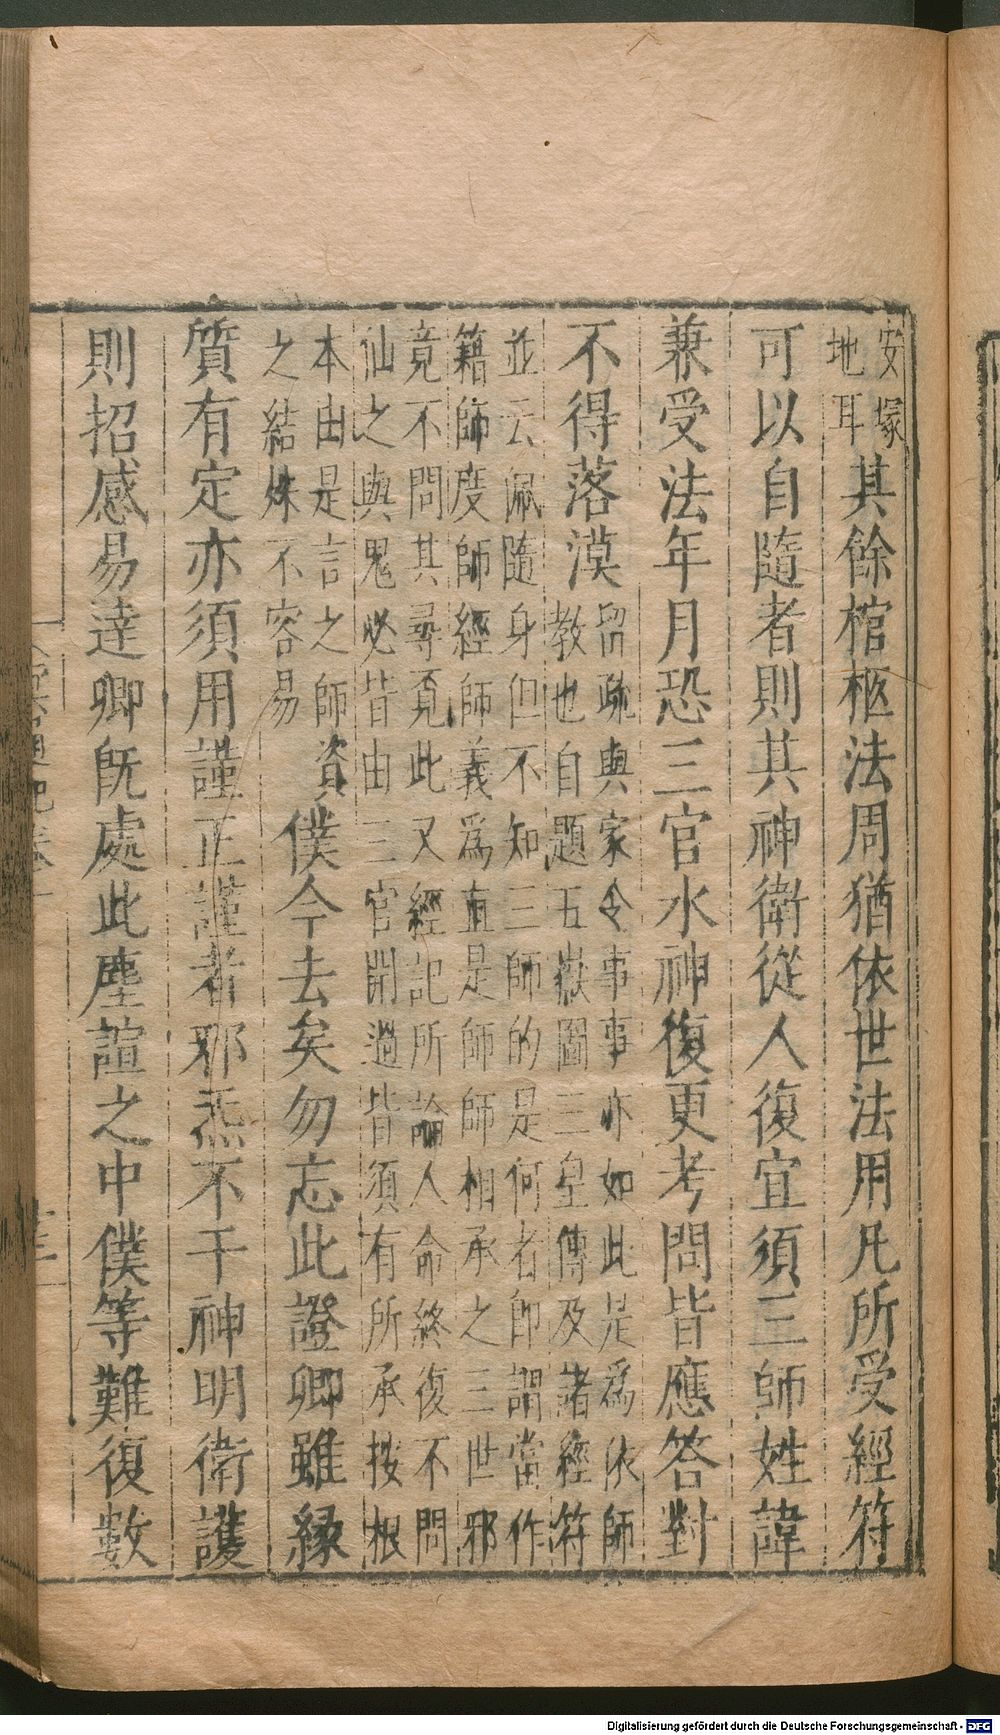 安塚
地耳
其餘棺柩法周猶依世法用凡所受經符
可以自隨者則其神衛從人復宜須三師姓諱
兼受法年月恐三官水神復更考問皆應答對
不得落漠
留疏與家令事事亦如此是為依師
教也自題五嶽圖三皇傳及諸經符
並云佩隨身但不知三師的是何者即謂當作
籍師度師經師義為直是師師相承之三世邪
竟不問其尋覓此又經記所論人命終復不問
仙之與鬼必皆由三官開過皆須有所承按根
本由是言之師資
之結姝不容易
僕今去矣勿忘此證卿雖緣
質有定亦須用謹正謹者邪炁不干神明衛護
則招感易達卿既處此塵諠之中僕等難復數
Digitalisierung gefördert durch die Deutsche Forschungsgemeinschaft - DFG